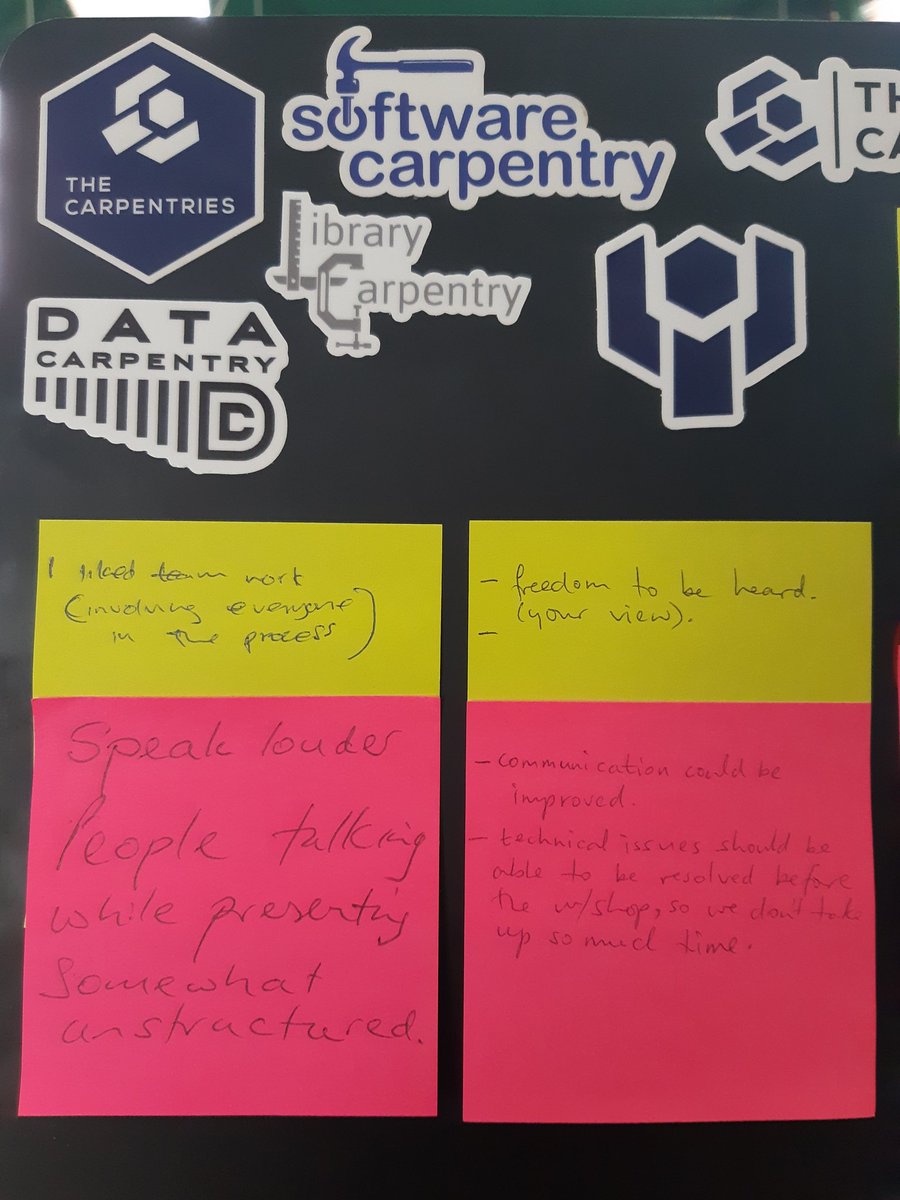 THE
CARPENTRIES
software
carpentry
TH
CA
Library
Carpentry
DATA
CARPENTRY
DC
I liked team work
(involving everyone
in the process)
- freedom to be heard.
(your view).
-
Speak louder
People talking
while presenting
Somewhat
unstructured.
- communication could be
improved.
- technical issues should be
able to be resolved before
the w/shop, so we don't take
up so much time.